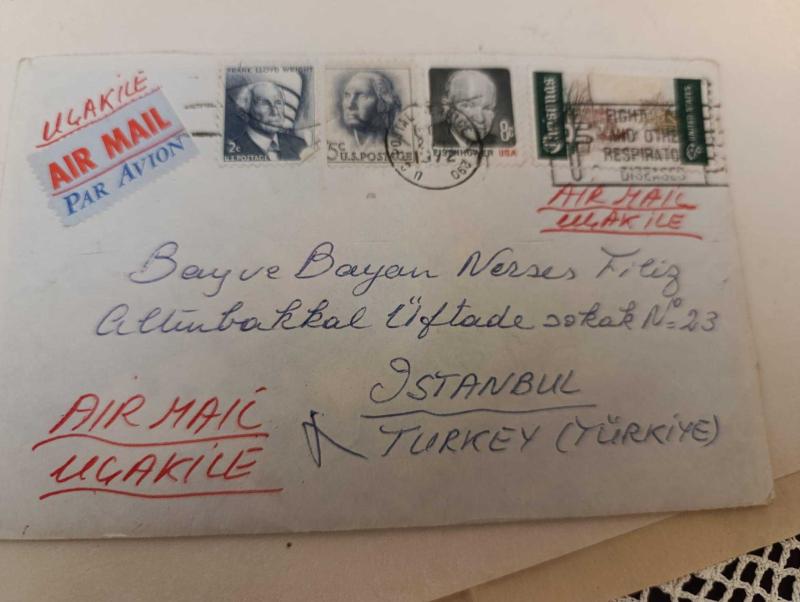 UÇAKİLE
AIR MAIL
PAR AVION
FRANK LLOYD WRIGHT
2c
U.S. POSTAGE
5c
U.S. POSTAGE
8c
EISENHOWER USA
Christmas
UNITED STATES
FIGHT
AND OTHER
RESPIRATO
DISEASES
AIR MAIL
UÇAKILE
Bay ve Bayan Nerses Filiz
Altınbakkal Üftade sokak No=23
İSTANBUL
TURKEY (TÜRKİYE)
AIR MAIL
UÇAKILE